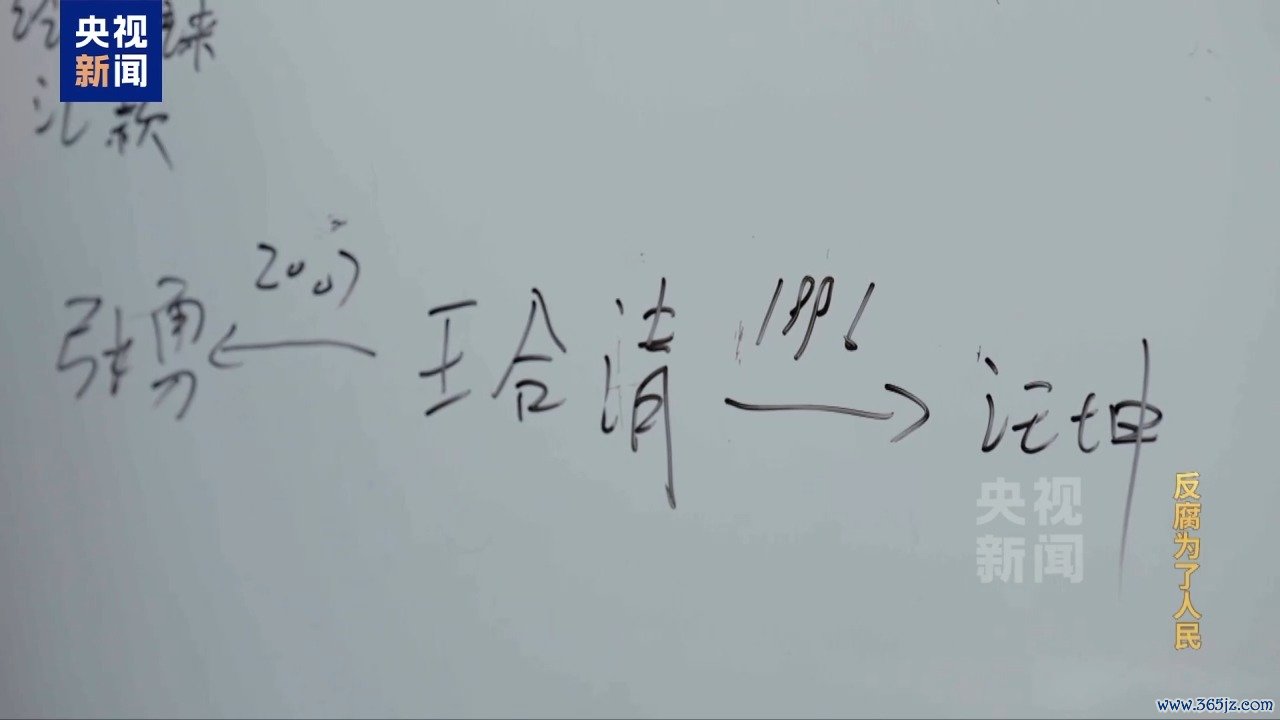 央视
新闻
汇款
2007
1996
张勇 ← 王合清 → 汪坤
央视
新闻
反腐为了人民
www.365jz.com